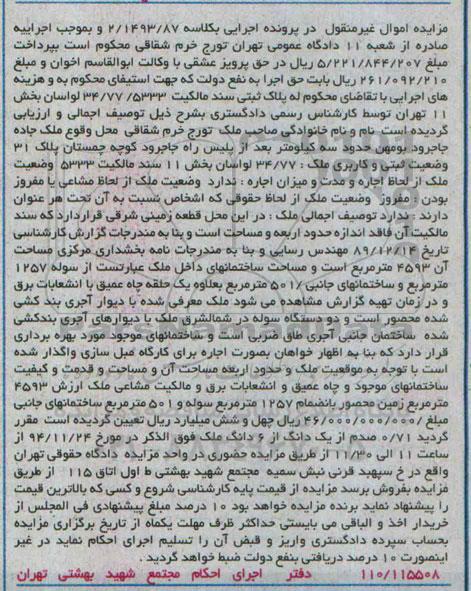 مزایده اموال غیرمنقول در پرونده اجرایی بکلاسه ۲/۱۴۹۳/۸۷ و بموجب اجراییه
صادره از شعبه ۱۱ دادگاه عمومی تهران تورج خرم شقاقی محکوم است بپرداخت
مبلغ ۵/۲۲۱/۸۴۴/۲۰۷ ریال در حق پرویز عشقی با وکالت ابوالقاسم اخوان و مبلغ
۲۶۱/۰۹۲/۲۱۰ ریال بابت حق اجرا به نفع دولت که جهت استیفای محکوم به و هزینه
های اجرایی با تقاضای محکوم له پلاک ثبتی سند مالکیت ۳۴/۷۷/۵۳۳۳ لواسان بخش
۱۱ تهران توسط کارشناس رسمی دادگستری بشرح ذیل توصیف اجمالی و ارزیابی
گردیده است نام و نام خانوادگی صاحب ملک تورج خرم شقاقی محل وقوع ملک جاده
جاجرود بومهن حدود سه کیلومتر بعد از پلیس راه جاجرود کوچه چمستان پلاک ۳۱
وضعیت ثبتی و کاربری ملک : ۳۴/۷۷ لواسان بخش ۱۱ سند مالکیت ۵۳۳۳ وضعیت
ملک از لحاظ اجاره و مدت و میزان اجاره : ندارد وضعیت ملک از لحاظ مشاعی یا مفروز
بودن : مفروز وضعیت ملک از لحاظ حقوقی که اشخاص نسبت به آن تحت هر عنوان
دارند : ندارد توصیف اجمالی ملک : در این محل قطعه زمینی شرقی قراردارد که سند
مالکیت آن فاقد اندازه حدود اربعه و مساحت است و بنا به مندرجات گزارش کارشناسی
تاریخ ۸۹/۱۲/۱۴ مهندس رسایی و بنا به مندرجات نامه بخشداری مرکزی مساحت
آن ۴۵۹۳ مترمربع است و مساحت ساختمانهای داخل ملک عبارتست از سوله ۱۲۵۷
مترمربع و ساختمانهای جانبی /۵۰۱ مترمربع بعلاوه یک حلقه چاه عمیق با انشعابات برق
و در زمان تهیه گزارش مشاهده می شود ملک معرفی شده با دیوار آجری بند کشی
شده محصور است و دو دستگاه سوله در شمالشرق ملک با دیوارهای آجری بندکشی
شده ساختمان جانبی آجری طاق ضربی است و ساختمانهای موجود مورد بهره برداری
قرار دارد که بنا به اظهار خواهان بصورت اجاره برای کارگاه مبل سازی واگذار شده
است با توجه به موقعیت ملک و حدود اربعه و مساحت آن و مساحت و قدمت و کیفیت
ساختمانهای موجود و چاه عمیق و انشعابات برق و مالکیت مشاعی ملک ارزش ۴۵۹۳
مترمربع زمین محصور بانضمام ۱۲۵۷ مترمربع سوله و ۵۰۱ مترمربع ساختمانهای جانبی
مبلغ /۴۶/۰۰۰/۰۰۰/۰۰۰ ریال چهل و شش میلیارد ریال تعیین گردیده است مقرر
گردید ۰/۷۱ صدم از یک دانگ از ۶ دانگ ملک فوق الذکر در مورخ ۹۴/۱۱/۲۴ از
ساعت ۱۱ الی ۱۱/۳۰ از طریق مزایده حضوری در واحد مزایده دادگاه حقوقی تهران
واقع در خ سپهبد قرنی نبش سمیه مجتمع شهید بهشتی ط اول اتاق ۱۱۵ از طریق
مزایده بفروش برسد مزایده از قیمت پایه کارشناسی شروع و کسی که بالاترین قیمت
را پیشنهاد نماید برنده مزایده خواهد بود ۱۰ درصد مبلغ پیشنهادی فی المجلس از
خریدار اخذ و الباقی می بایستی حداکثر ظرف مهلت یکماه از تاریخ برگزاری مزایده
بحساب سپرده دادگستری واریز و قبض آن را تسلیم اجرای احکام نماید در غیر
اینصورت ۱۰ درصد دریافتی بنفع دولت ضبط خواهد گردید .
۱۱۰/۱۱۵۵۰۸ دفتر اجرای احکام مجتمع شهید بهشتی تهران